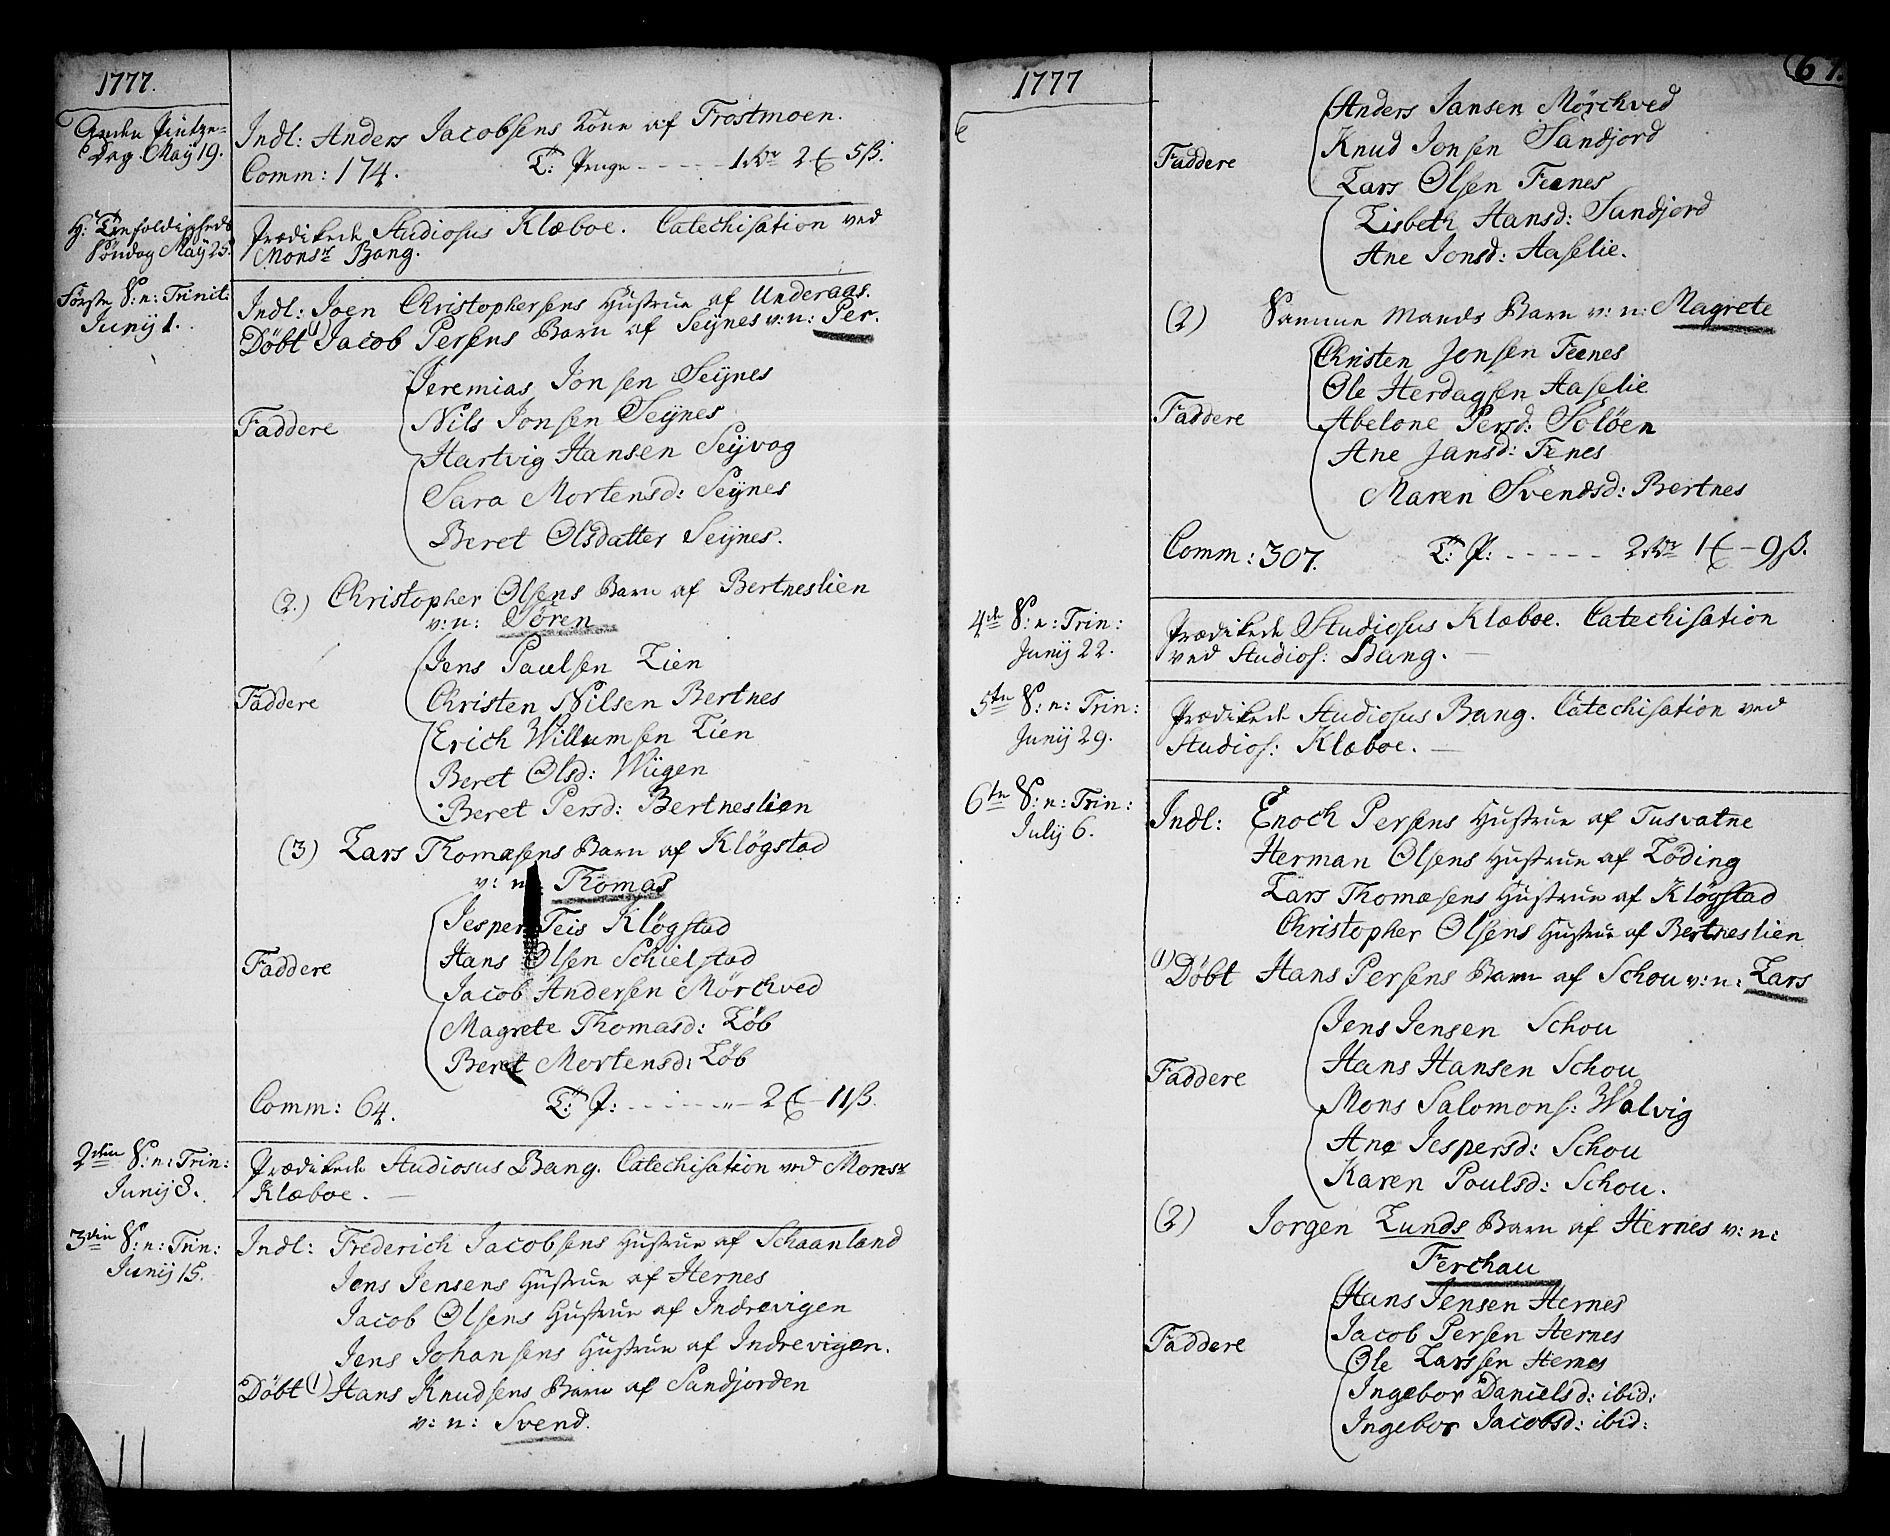 1777.
Anden Pintze=
Dag. May 19.
Indl: Anders Jacobsens Kone af Frostmoen.
Comm: 174. T. Penge - - - - - 1 2 5ß.
H: Trefoldigheds
Søndag May 25.
Prædikede Studiosus Klæboe. Catechisation ved
Monsr Bang.
Første S: n: Trinit:
Junij 1.
Indl: Joen Christophersens Hustrue af Underaas.
Døbt (1) Jacob Persens Barn af Seijnes v: n: Per.
Jeremias Jonsen Seijnes
Nils Jonsen Seijnes
Faddere
Hartvig Hansen Seijvog
Sara Mortensd: Seijnes
Beret Olsdatter Seijnes.
(2.) Christopher Olsens Barn af Bertneslien
v: n: Søren
Jens Paulsen Lien
Faddere Christen Nilsen Bertnes
Erich Willumsen Lien
Beret Olsd: Wiigen
Beret Persd: Bertneslien
(3) Lars Thomæsens Barn af Kløgstad
v: n: Thomas
Jesper Teis Kløgstad
Hans Olsen Schielstad
Faddere
Jacob Andersen Mørchved
Magrete Thomasd: Løb
Beret Mortensd: Løb
Comm: 64. T: P: - - - - - 2 - 11ß.
2den S: n: Trin:
Junij 8.
Prædikede Studiosus Bang. Catechisation ved Monsr
Klæboe. —
3die S: n: Trin:
Junij 15.
Indl: Frederich Jacobsens Hustrue af Schaanland
Jens Jensens Hustrue af Hernes
Jacob Olsens Hustrue af Indrevigen
Jens Johansens Hustrue af Indrevigen.
Døbt (1) Hans Knudsens Barn af Sandjorden
v: n: Svend.
1777
67.
Anders Jansen Mørchved
Knud Jonsen Sandjord
Faddere
Lars Olsen Feenes
Lisbeth Hansd: Sundjord
Ane Jonsd: Aaselie.
(2) Samme Mands Barn v: n: Magrete
Christen Jonsen Feenes
Ole Herdagsen Aaselie
Faddere Abelone Persd: Soløen
Ane Jansd: Fenes
Maren Svendsd: Bertnes
Comm: 307. T: P: - - - - - 2 1 - 9ß.
4de S: n: Trin:
Junij 22.
Prædikede Studiosus Klæboe. Catechisation
ved Studios: Bang. —
5te S: n: Trin:
Junij 29.
Prædikede Studiosus Bang. Catechisation ved
Studios: Klæboe. —
6te S: n: Trin:
Julij 6.
Indl: Enoch Persens Hustrue af Tusvatne
Herman Olsens Hustrue af Løding
Lars Thomæsens Hustrue af Kløgstad
Christopher Olsens Hustrue af Bertneslien
1) Døbt Hans Persens Barn af Schou v: n: Lars
Jens Jensen Schou
Faddere Hans Hansen Schou
Mons Salomons: Walvig
Ane Jespersd: Schou
Karen Poulsd: Schou.
(2) Jorgen Lunds Barn af Hernes v: n:
Ferchau
Hans Jensen Hernes
Faddere Jacob Persen Hernes
Ole Larssen Hernes
Ingebor Danielsd: ibid:
Ingebor Jacobsd: ibid: